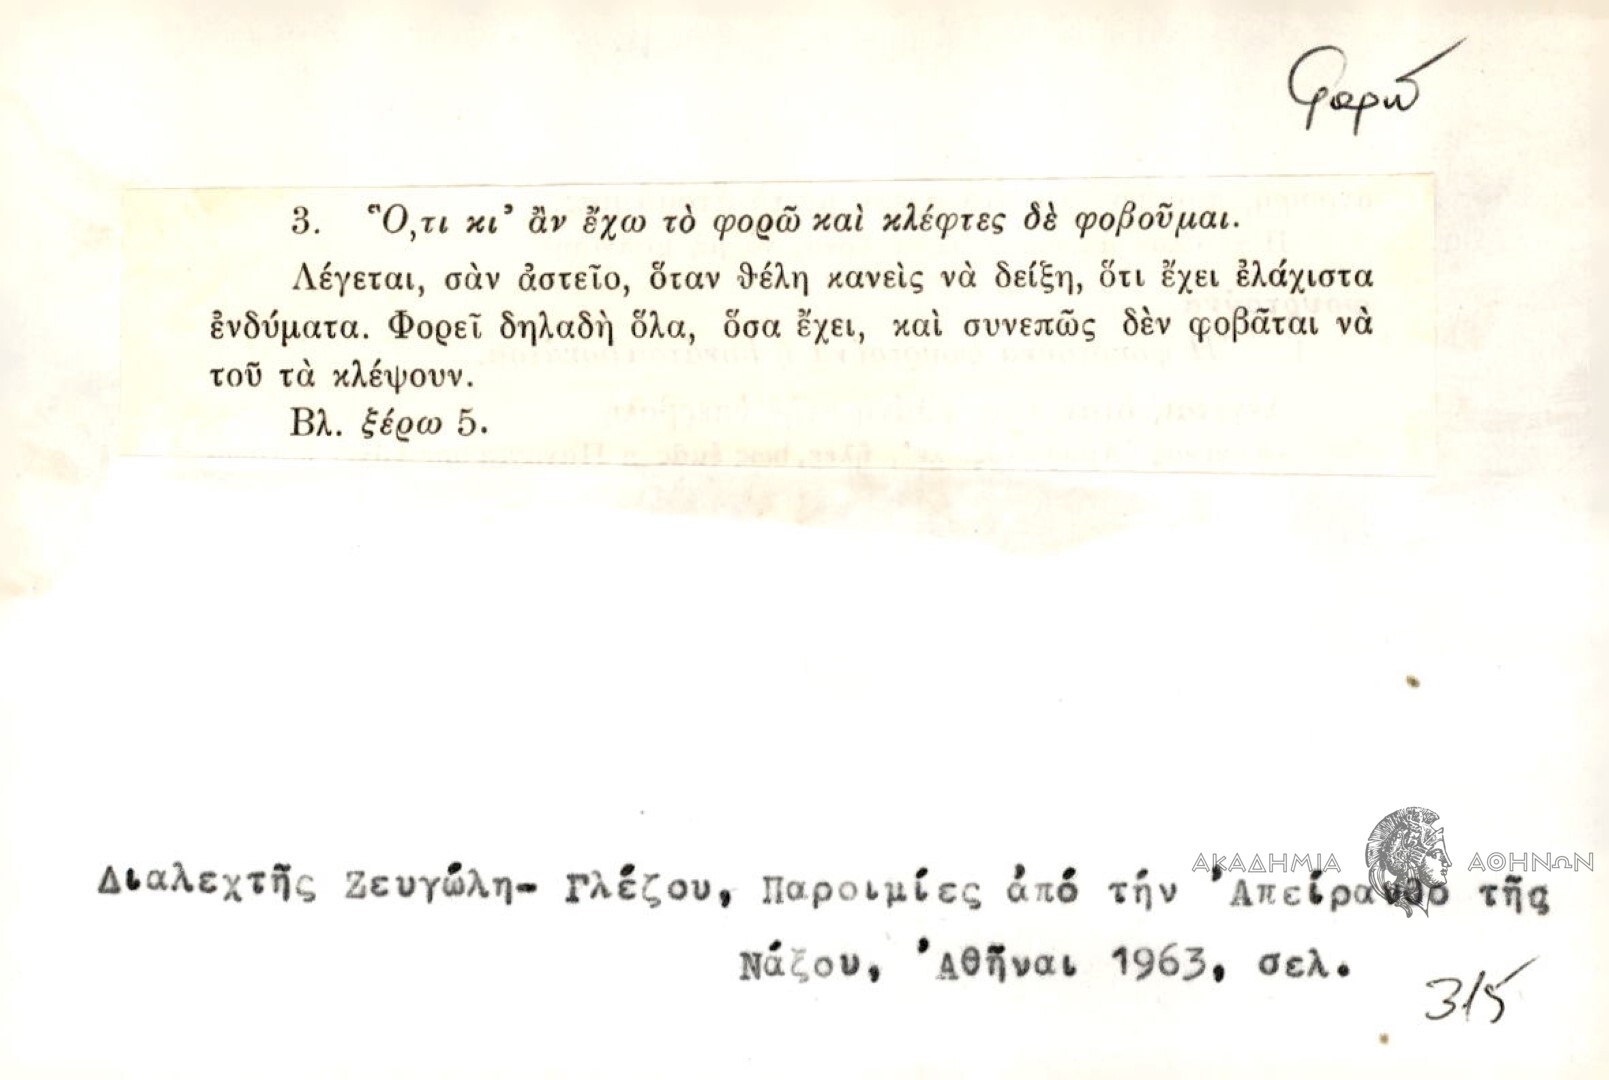 φορῶ
3. Ὅ,τι κι’ ἂν ἔχω τὸ φορῶ καὶ κλέφτες δὲ φοβοῦμαι.
Λέγεται, σὰν ἀστεῖο, ὅταν θέλη κανεὶς νὰ δείξη, ὅτι ἔχει ἐλάχιστα
ἐνδύματα. Φορεῖ δηλαδὴ ὅλα, ὅσα ἔχει, καὶ συνεπῶς δὲν φοβᾶται νὰ
τοῦ τὰ κλέψουν.
Βλ. ξέρω 5.
ΑΚΑΔΗΜΙΑ ΑΘΗΝΩΝ
Διαλεχτῆς Ζευγώλη- Γλέζου, Παροιμίες ἀπό τήν Ἀπείρανθο τῆς
Νάξου, Ἀθῆναι 1963, σελ.
315